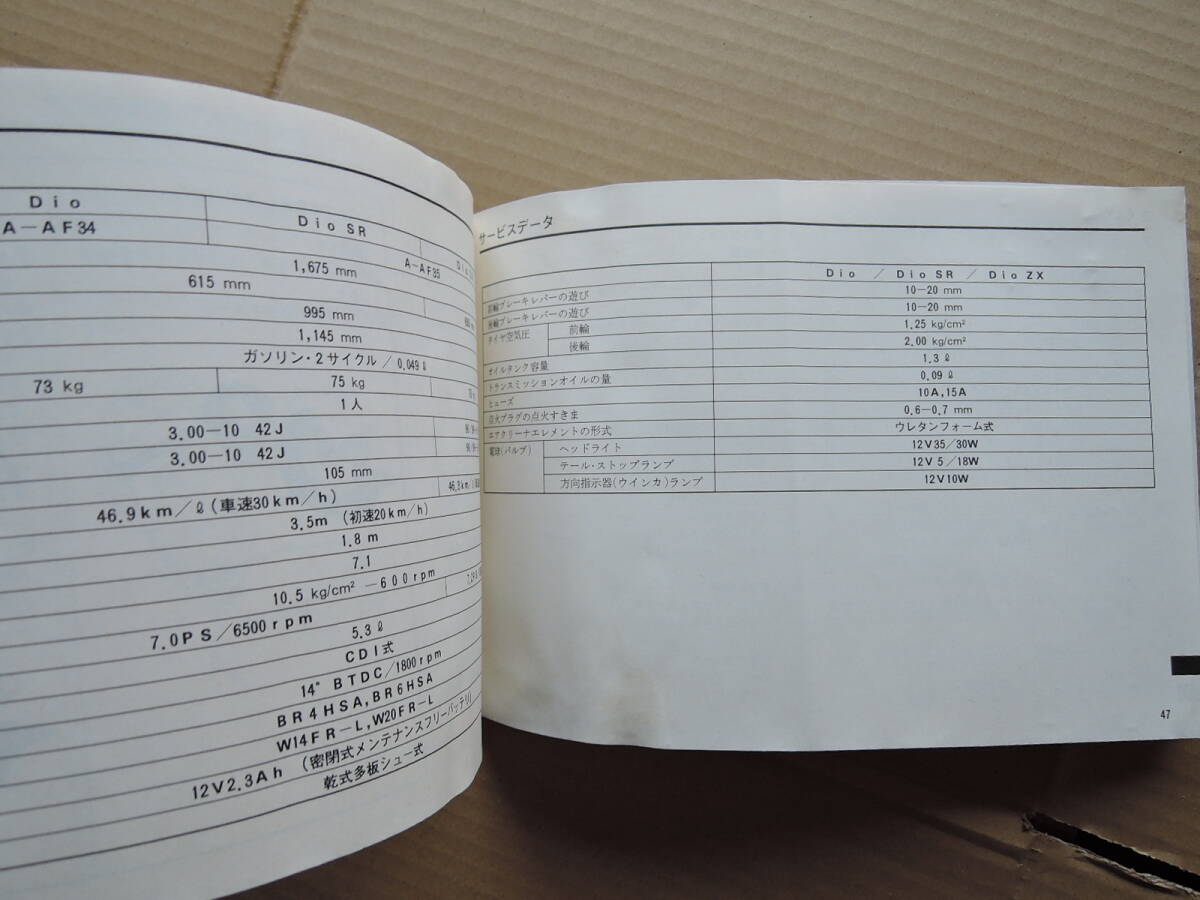 Dio
Dio SR
A-AF34
A-AF35
1,675 mm
615 mm
995 mm
1,145 mm
ガソリン・2サイクル/0.049ℓ
73 kg 75 kg
1人
3.00-10 42J
3.00-10 42J
105 mm
46.9km/ℓ(車速30km/h)
3.5m (初速20km/h)
1.8 m
7.1
10.5 kg/cm² -600rpm
7.0PS/6500rpm
5.3ℓ
CDI式
14° BTDC/1800rpm
BR4HSA,BR6HSA
W14FR-L,W20FR-L
12V2.3Ah (密閉式メンテナンスフリーバッテリ)
乾式多板シュー式
サービスデータ
Dio / Dio SR / Dio ZX
前輪ブレーキレバーの遊び 10-20 mm
後輪ブレーキレバーの遊び 10-20 mm
タイヤ空気圧 前輪 1.25 kg/cm²
後輪 2.00 kg/cm²
オイルタンク容量 1.3ℓ
トランスミッションオイルの量 0.09ℓ
ヒューズ 10A,15A
点火プラグの点火すきま 0.6-0.7 mm
エアクリーナエレメントの形式 ウレタンフォーム式
電球(バルブ) ヘッドライト 12V35/30W
テール・ストップランプ 12V 5/18W
方向指示器(ウインカ)ランプ 12V10W
47